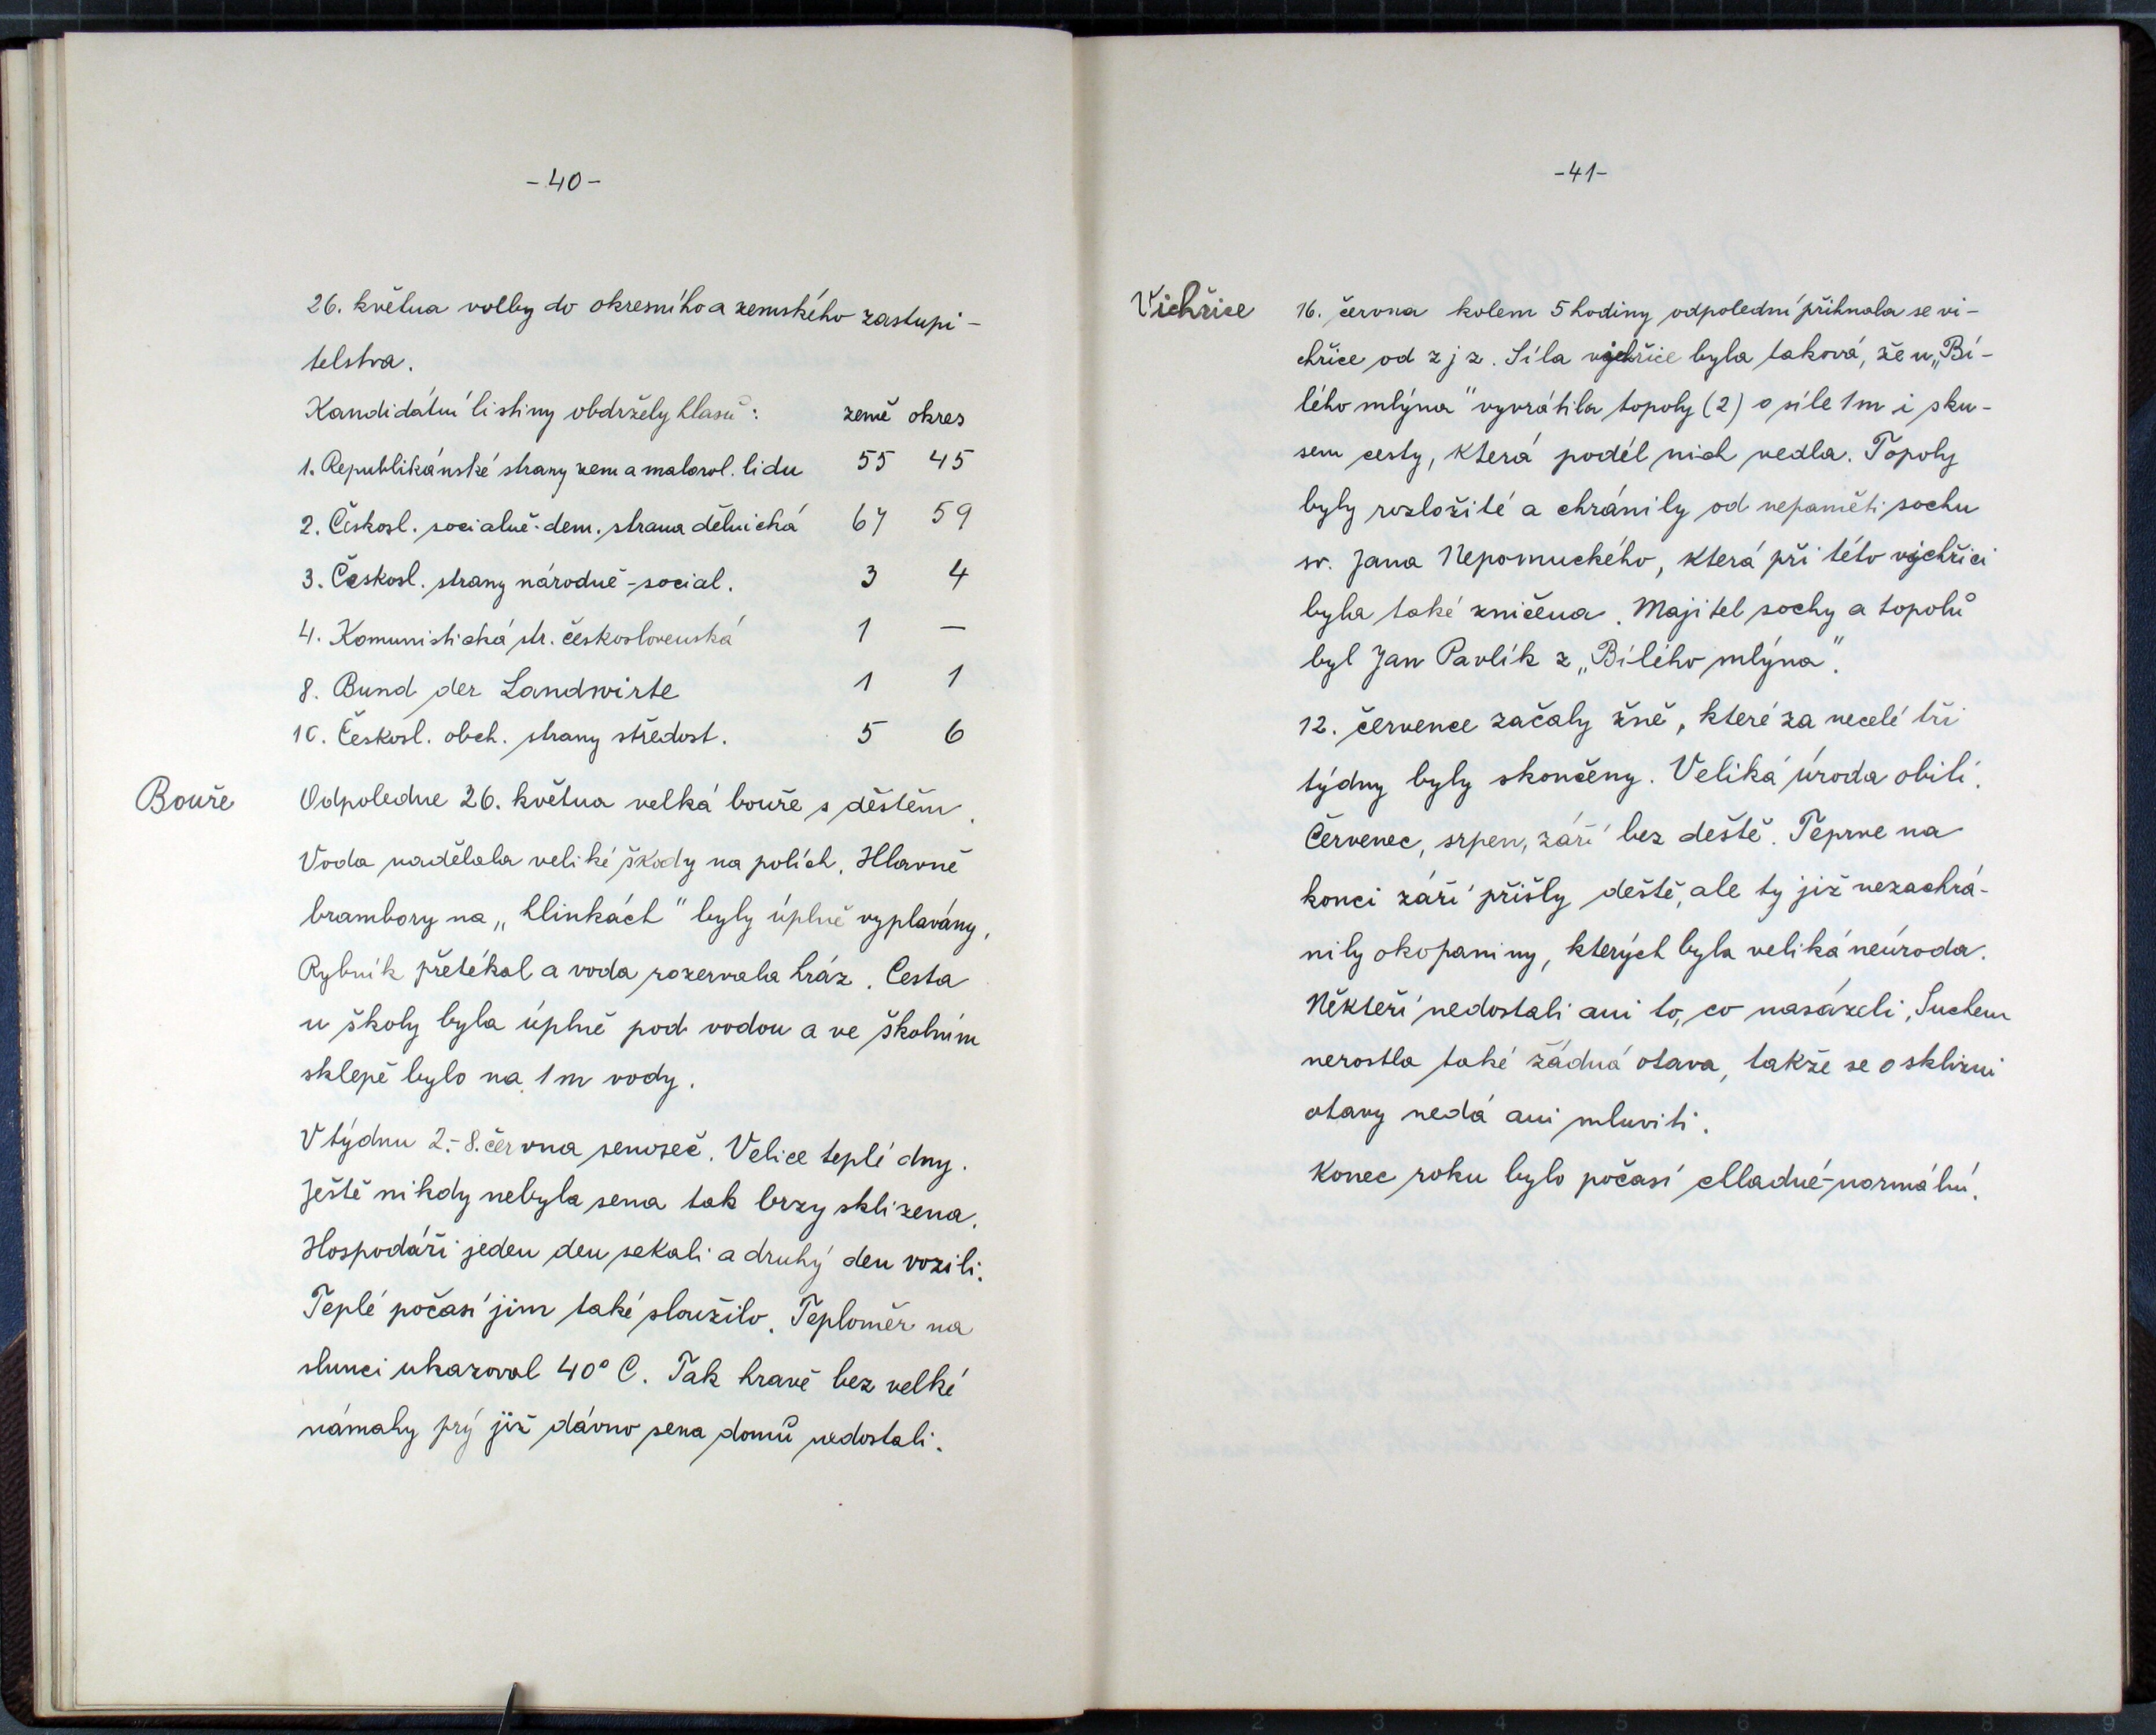 -40-
26. května volby do okresního a zemského zastupi-
telstva.
Kandidátní listiny obdržely hlasů: země okres
1. Republikánské strany zem a malorol. lidu 55 45
2. Českosl. socialně-dem. strana dělnická 67 59
3. Českosl. strany národně-social. 3 4
4. Komunistická str. československá 1 —
8. Bund der Landwirte 1 1
10. Českosl. obch. strany středost. 5 6
Bouře
Odpoledne 26. května velká bouře s deštěm.
Voda nadělala veliké škody na polích. Hlavně
brambory na „hlinkách" byly úplně vyplavány.
Rybník přetékal a voda rozervala hráz. Cesta
u školy byla úplně pod vodou a ve školním
sklepě bylo na 1m vody.
V týdnu 2.-8. června senoseč. Velice teplé dny.
Ještě nikdy nebyla sena tak brzy sklizena.
Hospodáři jeden den sekali a druhý den vozili.
Teplé počasí jim také sloužilo. Teploměr na
slunci ukazoval 40° C. Tak hravě bez velké
námahy prý již dávno sena domů nedostali.
-41-
Vichřice
16. června kolem 5 hodiny odpolední přihnala se vi-
chřice od z j z. Síla vichřice byla taková, že u „Bí-
lého mlýna" vyvrátila topoly (2) o síle 1m i sku-
sem cesty, která podél nich vedla. Topoly
byly rozložité a chránily od nepaměti sochu
sv. Jana Nepomuckého, která při této vichřici
byla také zničena. Majitel sochy a topolů
byl Jan Pavlík z „Bílého mlýna".
12. července začaly žně, které za necelé tři
týdny byly skončeny. Veliká úroda obilí.
Červenec, srpen, září bez deště. Teprve na
konci září přišly deště, ale ty již nezachrá-
nily okopaniny, kterých byla veliká neúroda.
Někteří nedostali ani to, co nasázeli. Suchem
nerostla také žádná otava, takže se o sklizni
otavy nedá ani mluviti.
Konec roku bylo počasí chladné-normální.